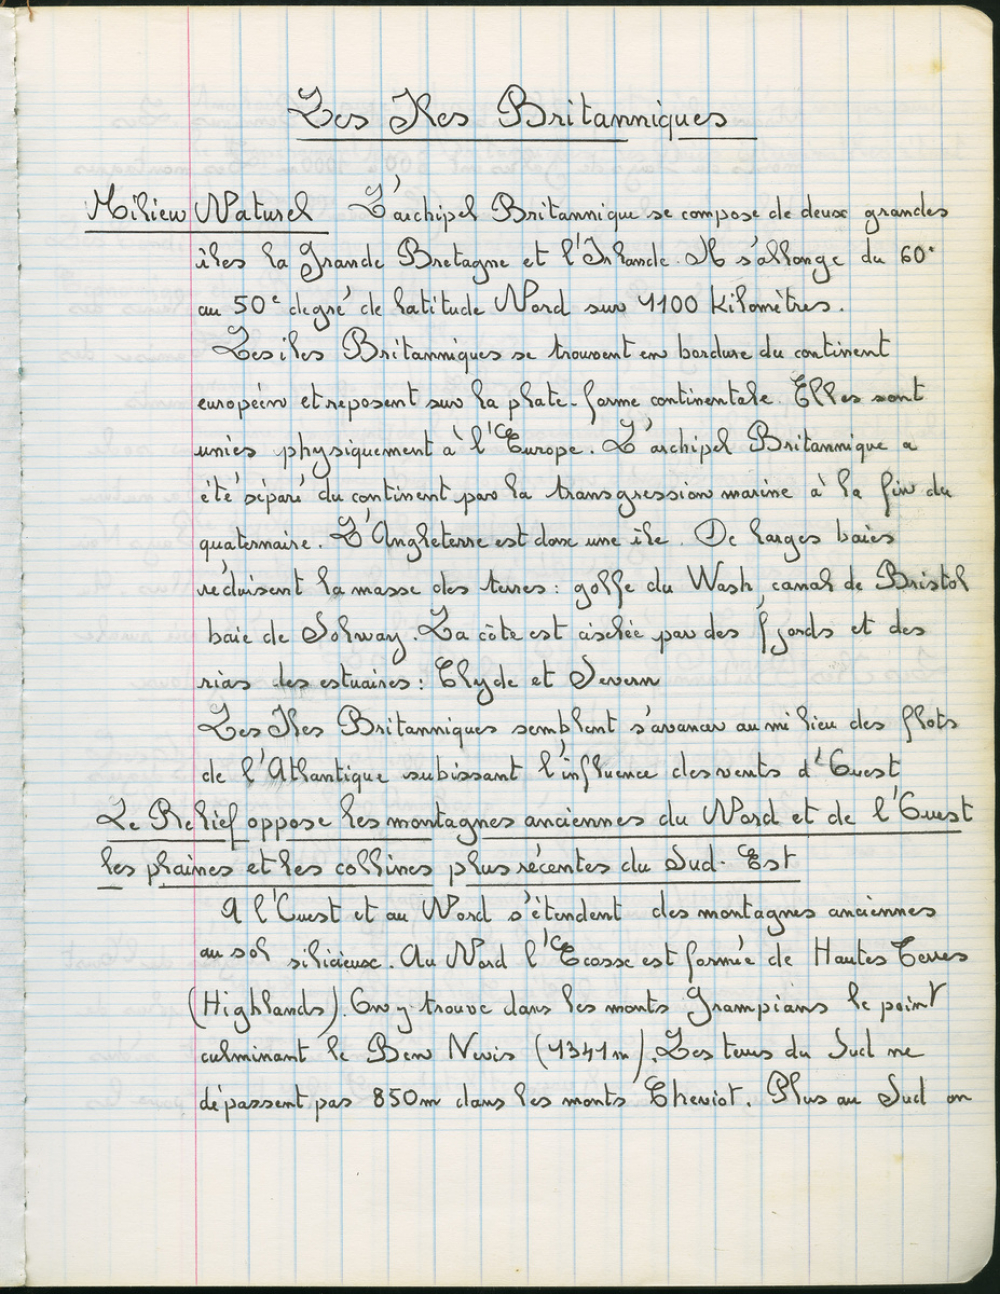 Les Iles Britanniques
Milieu Naturel L'archipel Britannique se compose de deux grandes
îles la Grande Bretagne et l'Irlande. Il s'allonge du 60°
au 50e degré de latitude Nord sur 1100 Kilomètres.
Les iles Britanniques se trouvent en bordure du continent
européen et reposent sur la plate-forme continentale. Elles sont
unies physiquement à l'Europe. L'archipel Britannique a
été séparé du continent par la transgression marine à la fin du
quaternaire. L'Angleterre est donc une île. De larges baies
réduisent la masse des terres : golfe du Wash, canal de Bristol
baie de Solway. La côte est ciselée par des fjords et des
rias des estuaires : Clyde et Severn
Les Iles Britanniques semblent s'avancer au milieu des flots
de l'Atlantique subissant l'influence des vents d'Ouest
Le Relief oppose les montagnes anciennes du Nord et de l'Ouest
les plaines et les collines plus récentes du Sud-Est
A l'Ouest et au Nord s'étendent des montagnes anciennes
au sol silicieux. Au Nord l'Ecosse est formée de Hautes Terres
(Highlands). On y trouve dans les monts Grampians le point
culminant le Ben Nevis (1341m). Les terres du Sud ne
dépassent pas 850m dans les monts Cheviot. Plus au Sud on